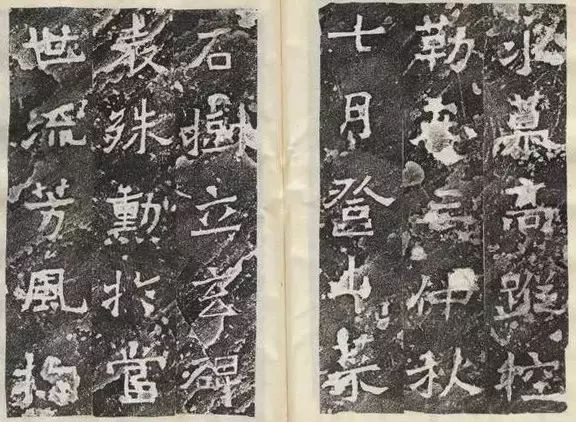 永慕高蹤控
勒仲秋
七月登山菜
石樹立玄碑
表殊勳扵當
世流芳風扵